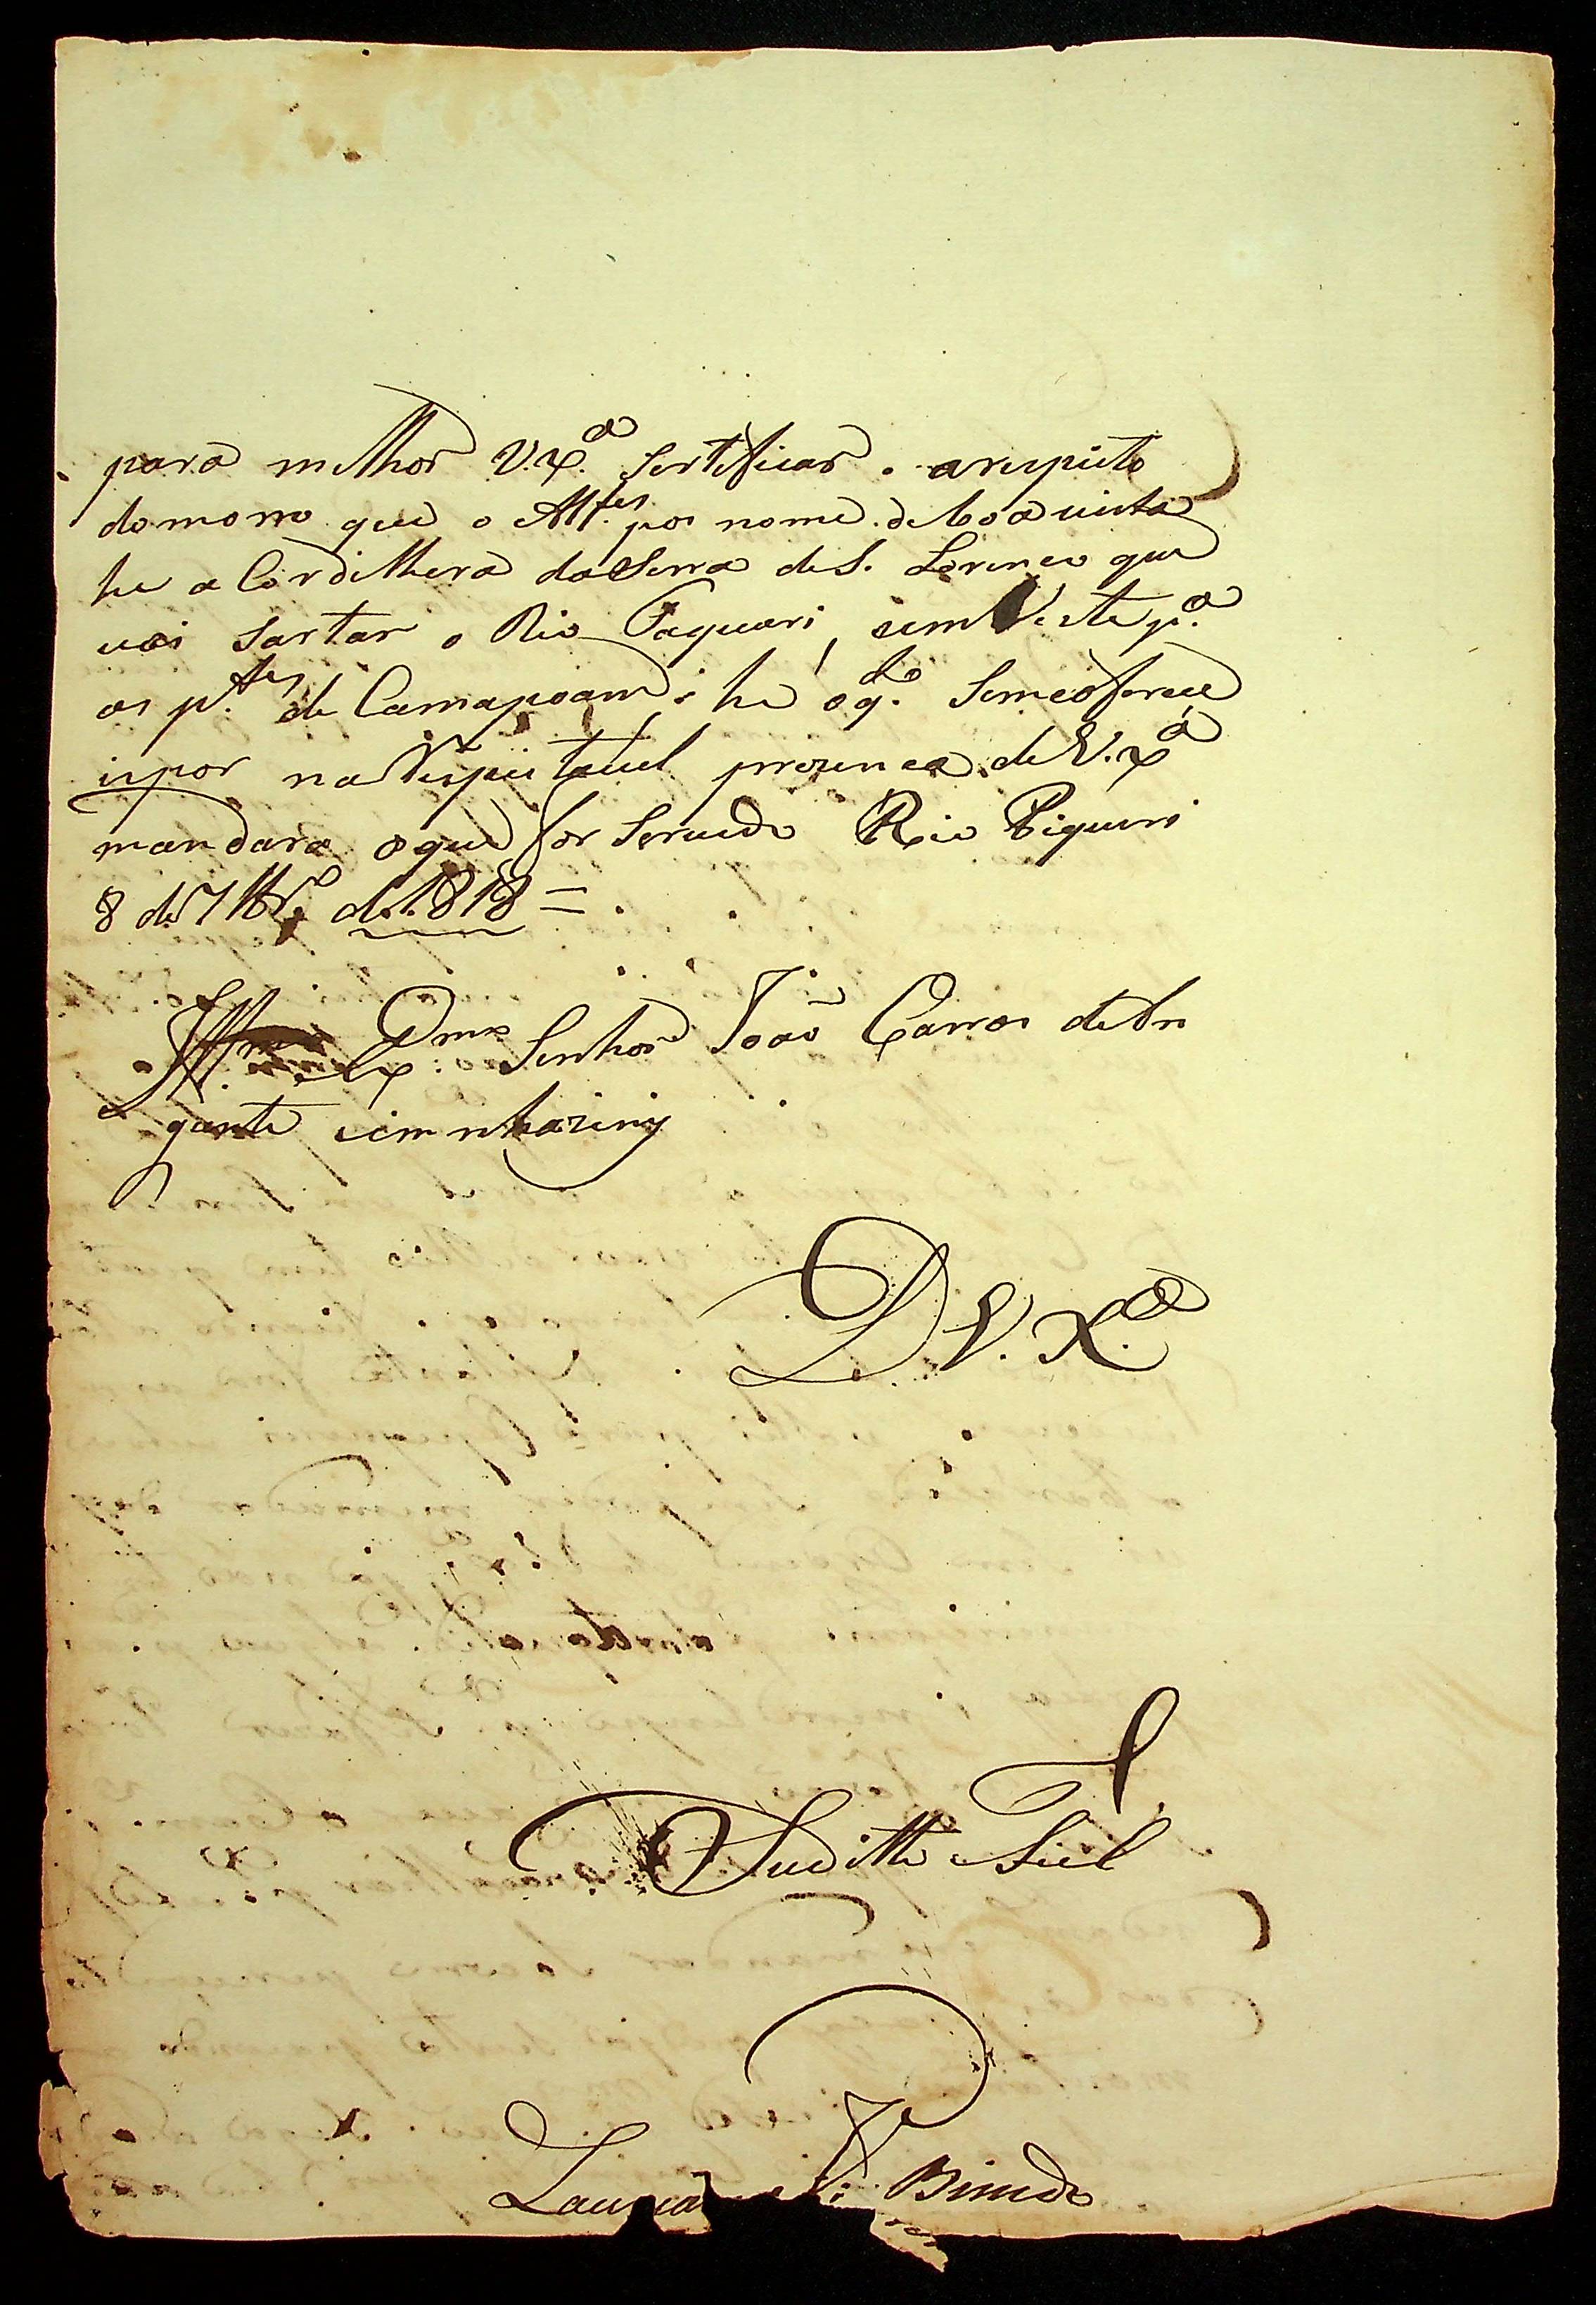 para melhor V. Exª. Serteficar. arespeito
do morro que o Alfes. por nome. de boavista
he a Cordilhera da Serra de S. Lorenco que
vai Sartar o Rio Taquari, sem Veste pª.
as ptes. de Camapoam. he oqdo. Semeoferece
ispor na Respeitavel prezenca. de V. Exª
mandara oque for Servido Rio Piquiri
8 de 7bro. de 1818 = .
Illmo. Exmo Senhor João Carros de
D V. Exª.
Sudito Fiel